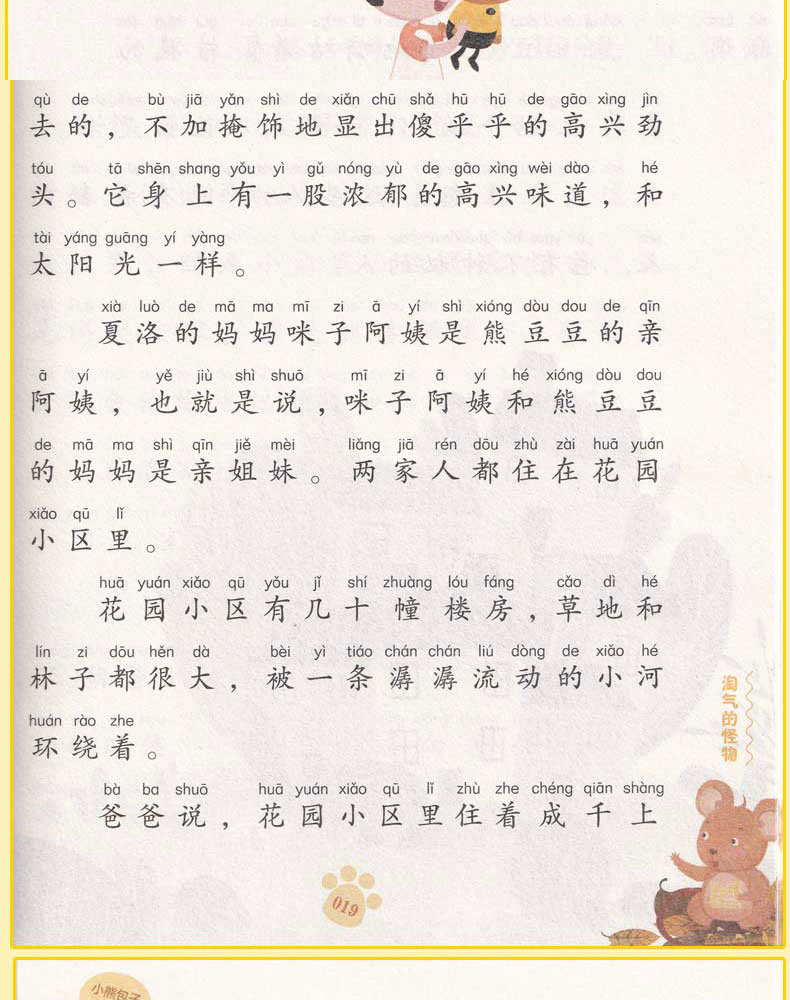 qù de bù jiā yǎn shì de xiǎn chū shǎ hū hū de gāo xìng jìn
去的，不加掩饰地显出傻乎乎的高兴劲
tóu tā shēn shang yǒu yì gǔ nóng yù de gāo xìng wèi dào hé
头。它身上有一股浓郁的高兴味道，和
tài yáng guāng yí yàng
太阳光一样。
xià luò de mā ma mī zi ā yí shì xióng dòu dou de qīn
夏洛的妈妈咪子阿姨是熊豆豆的亲
ā yí yě jiù shì shuō mī zi ā yí hé xióng dòu dou
阿姨，也就是说，咪子阿姨和熊豆豆
de mā ma shì qīn jiě mèi liǎng jiā rén dōu zhù zài huā yuán
的妈妈是亲姐妹。两家人都住在花园
xiǎo qū lǐ
小区里。
huā yuán xiǎo qū yǒu jǐ shí zhuàng lóu fáng cǎo dì hé
花园小区有几十幢楼房，草地和
lín zi dōu hěn dà bèi yì tiáo chán chán liú dòng de xiǎo hé
林子都很大，被一条潺潺流动的小河
huán rào zhe
环绕着。
bà ba shuō huā yuán xiǎo qū lǐ zhù zhe chéng qiān shàng
爸爸说，花园小区里住着成千上
淘气的怪物
019
小熊包子